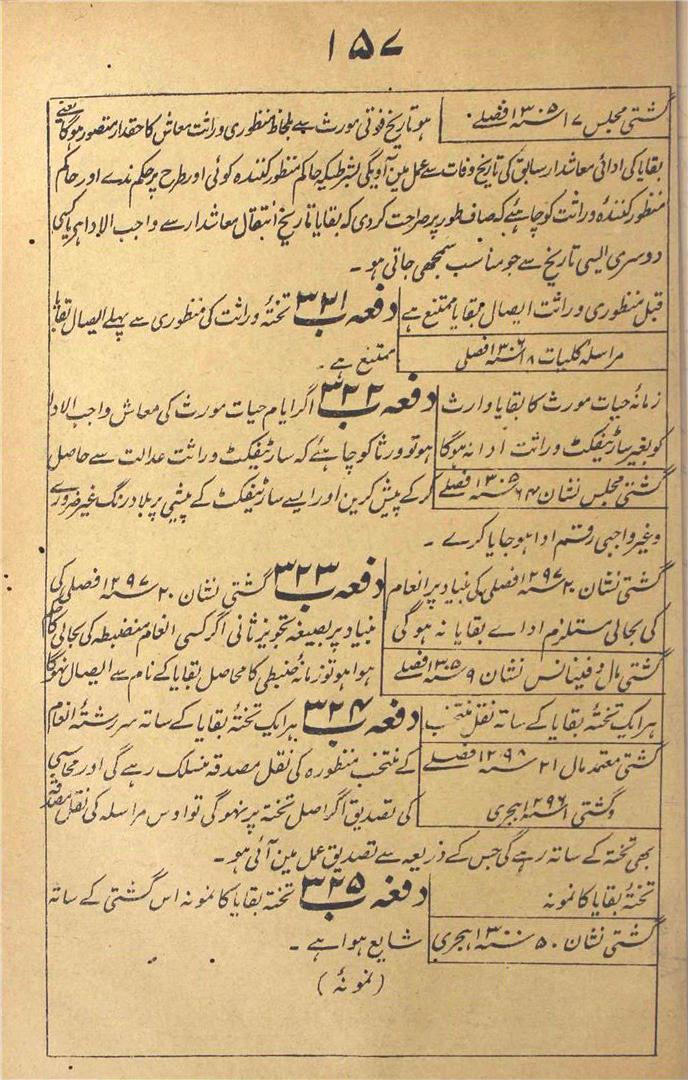 ۱۵۷
گشتی مجلس ۱۷ سنہ ۱۳۰۵ فصلے
ہو تاریخ فوتی مورث سے بلحاظ منظوری وراثت معاش کا حقدار متصور ہوگا یعنے
بقایا کی ادائی معاشدار سابق کی تاریخ وفات سے عمل مین آویگی بشرطیکہ حاکم منظور کنندہ کوئی اور طرح پر حکم ندے اور حاکم
منظور کنندہ وراثت کو چاہئے کہ صاف طور پر صراحت کردی کہ بقایا تاریخ انتقال معاشدار سے واجب الادا ہر یا کسی
دوسری ایسی تاریخ سے جو مناسب سمجھی جاتی ہو ۔
قبل منظوری وراثت ایصال بقایا ممتنع ہے
دفعہ ۳۲۱ تختۂ وراثت کی منظوری سے پہلے ایصال بقایا
مراسلہ کلیات ۱۸ سنہ ۱۳۰۶ فصلی
ممتنع ہے ۔
زمانۂ حیات مورث کا بقایا وارث
دفعہ ۳۲۲ اگر ایام حیات مورث کی معاش واجب الادا
کو بغیر سارٹیفکٹ وراثت ادا نہ ہوگا
ہو تو ورثا کو چاہئے کہ سارٹیفکٹ وراثت عدالت سے حاصل
گشتی مجلس نشان ۶۴ سنہ ۱۳۰۵ فصلے
کرکے پیش کرین اور ایسے سارٹیفکٹ کے پیشی پر بلا درنگ غیر ضروری
وغیر واجبی رقم ادا ہو جایا کرے ۔
گشتی نشان ۲۰ سنہ ۱۲۹۷ فصلی کی بنیاد پر انعام
دفعہ ۳۲۳ گشتی نشان ۲۰ سنہ ۱۲۹۷ فصلی کی
کی بحالی مستلزم اداے بقایا نہ ہوگی
بنیاد پر بصیغہ تجویز ثانی اگر کسی انعام منضبطہ کی بحالی کا حکم
گشتی مال و فینانس نشان ۹ سنہ ۱۳۰۵ فصلے
ہوا ہو تو زمانہ ضبطی کا محاصل بقایا کے نام سے ایصال نہوگا
ہر ایک تختۂ بقایا کے ساتہ نقل منتخب
دفعہ ۳۲۴ ہر ایک تختۂ بقایا کے ساتہ سررشتۂ انعام
گشتی معتمد مال ۲۱ سنہ ۱۲۹۸ فصلے
کے منتخب منظورہ کی نقل مصدقہ منسلک رہے گی اور محاسبی
و گشتی ۱ سنہ ۱۲۹۶ ہجری
کی تصدیق اگر اصل تختہ پر نہوگی تو اوس مراسلہ کی نقل مصدقہ
بھی تختہ کے ساتہ رہے گی جس کے ذریعہ سے تصدیق عمل مین آئی ہو ۔
تختۂ بقایا کا نمونہ
دفعہ ۳۲۵ تختۂ بقایا کا نمونہ اس گشتی کے ساتہ
گشتی نشان ۵۰ سنہ ۱۳۰۰ ہجری
شایع ہوا ہے ۔
(نمونۂ)